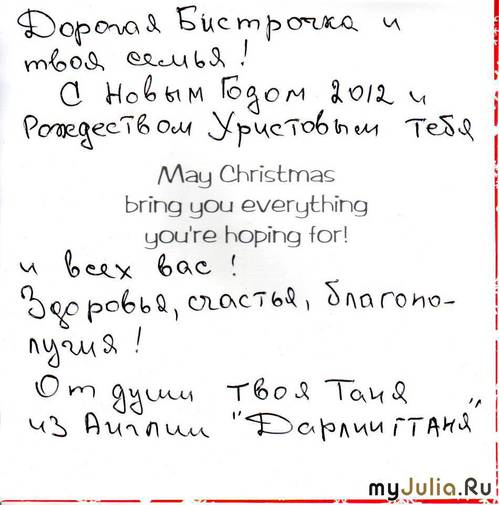 Дорогая Бистрочка и
твоя семья!
С Новым Годом 2012 и
Рождеством Христовым тебя
May Christmas
bring you everything
you're hoping for!
и всех вас!
Здоровья, счастья, благопо-
лучия!
От души твоя Таня
из Англии "ДарлингТаня"
myJulia.Ru